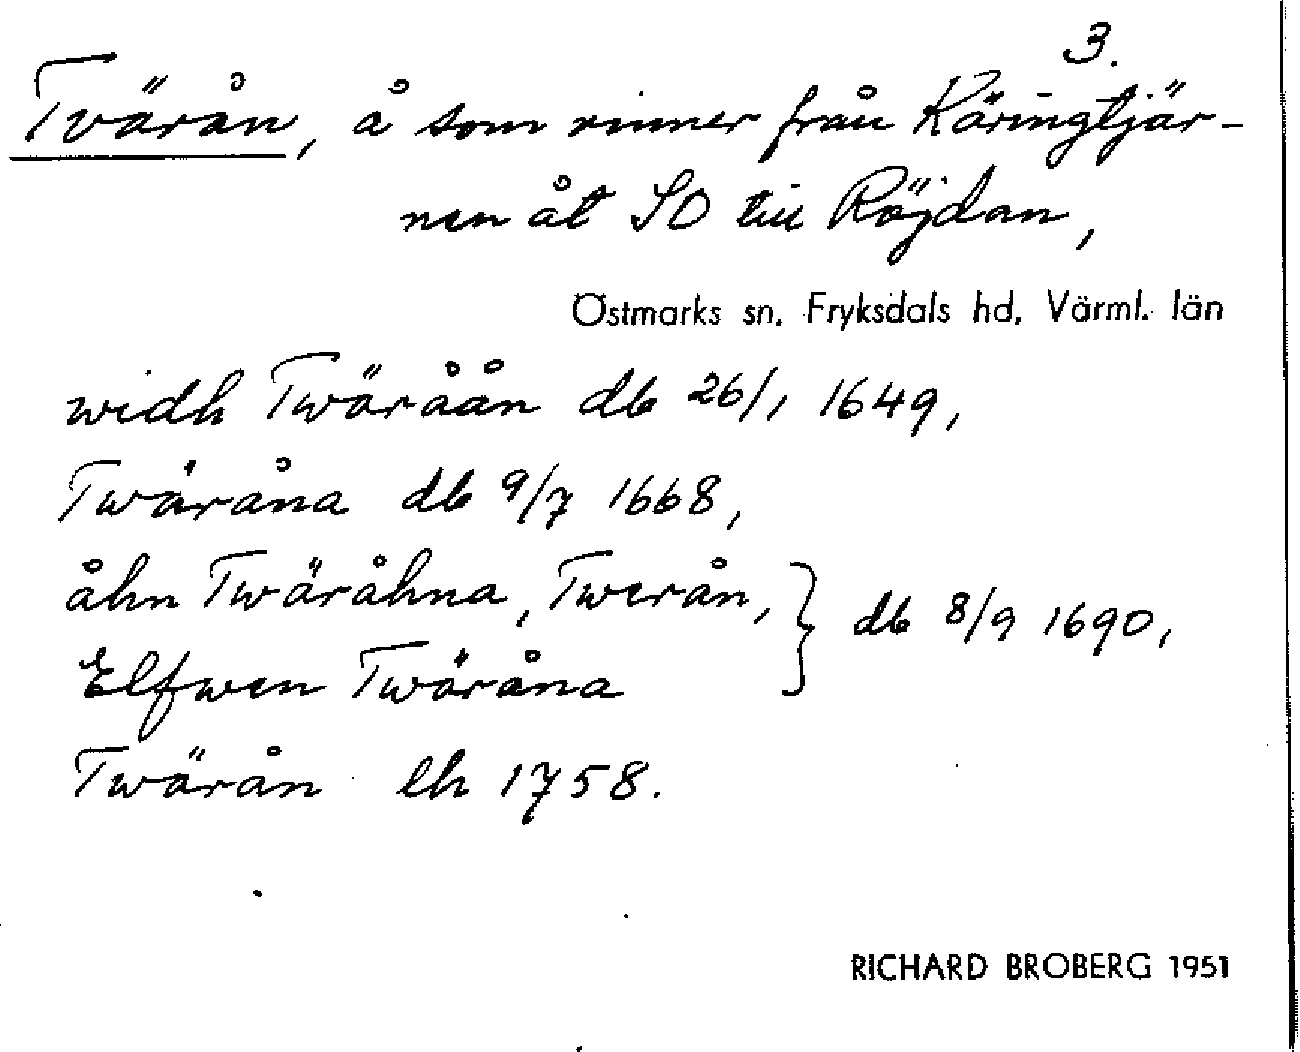 3.
Tvärån, å som rinner från Käringtjär-
nen åt SO till Röjdan,
Östmarks sn. Fryksdals hd, Värml. län
widh Twäråån db 26/1 1649,
Twäråna db 9/7 1668,
åhn Twäråhna, Twerån, } db 8/9 1690,
Elfwen Twäråna
Twärån lh 1758.
RICHARD BROBERG 1951